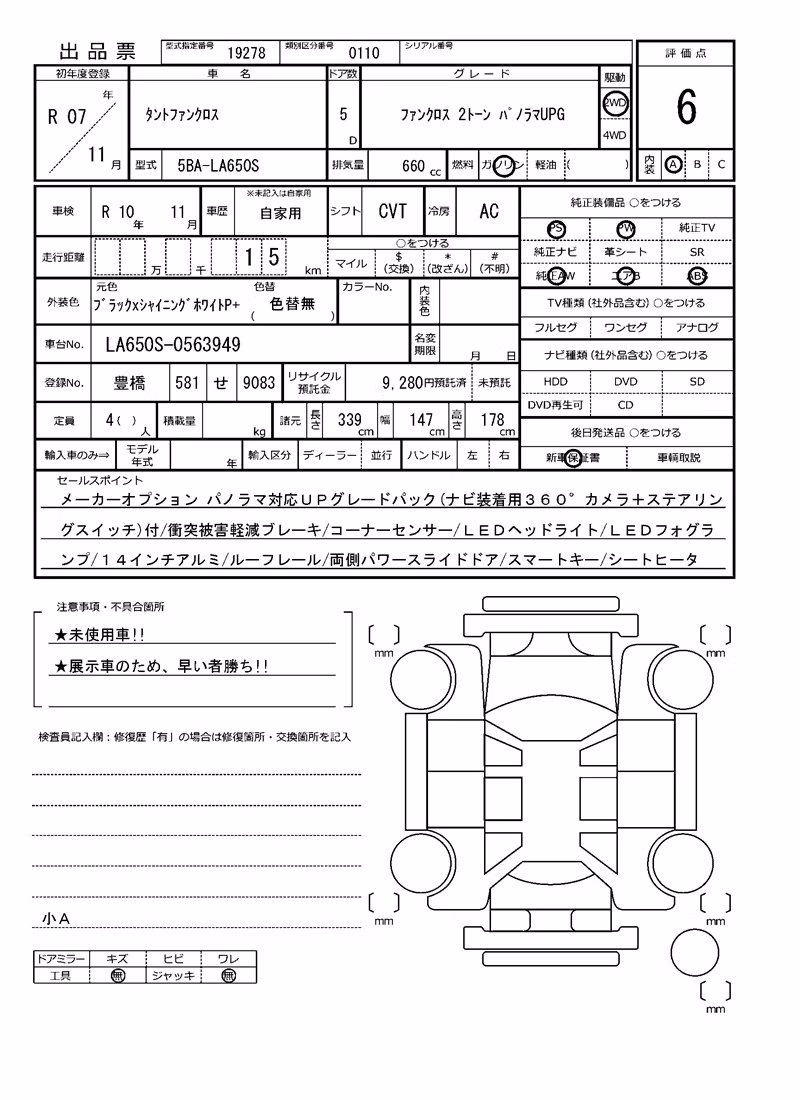 出品票
型式指定番号 19278 類別区分番号 0110 シリアル番号
評価点
6
内装 A B C
初年度登録 車名 ドア数 グレード 駆動
R 07 年 11 月
タントファンクロス
5 D
ファンクロス 2トーン パノラマUPG
2WD
4WD
型式 5BA-LA650S 排気量 660 cc 燃料 ガソリン 軽油 ( )
車検 R 10 年 11 月 車歴 ※未記入は自家用 自家用 シフト CVT 冷房 AC
走行距離 万 千 1 5 km
○をつける
マイル $(交換) *(改ざん) #(不明)
外装色 元色 ブラックxシャイニングホワイトP+ 色替 ( 色替無 ) カラーNo. 内装色
車台No. LA650S-0563949 名変期限 月 日
登録No. 豊橋 581 せ 9083 リサイクル預託金 9,280円預託済 未預託
定員 4( ) 人 積載量 kg 諸元 長さ 339 cm 幅 147 cm 高さ 178 cm
輸入車のみ⇒ モデル年式 年 輸入区分 ディーラー 並行 ハンドル 左 右
純正装備品 ○をつける
PS PW 純正TV
純正ナビ 革シート SR
純正AW エアB ABS
TV種類(社外品含む) ○をつける
フルセグ ワンセグ アナログ
ナビ種類(社外品含む) ○をつける
HDD DVD SD
DVD再生可 CD
後日発送品 ○をつける
新車保証書 車輌取説
セールスポイント
メーカーオプション パノラマ対応UPグレードパック(ナビ装着用360°カメラ+ステアリン
グスイッチ)付/衝突被害軽減ブレーキ/コーナーセンサー/LEDヘッドライト/LEDフォグラ
ンプ/14インチアルミ/ルーフレール/両側パワースライドドア/スマートキー/シートヒータ
注意事項・不具合箇所
★未使用車!!
★展示車のため、早い者勝ち!!
検査員記入欄：修復歴「有」の場合は修復箇所・交換箇所を記入
小A
ドアミラー キズ ヒビ ワレ
工具 無 ジャッキ 無
mm
mm
mm
mm
mm